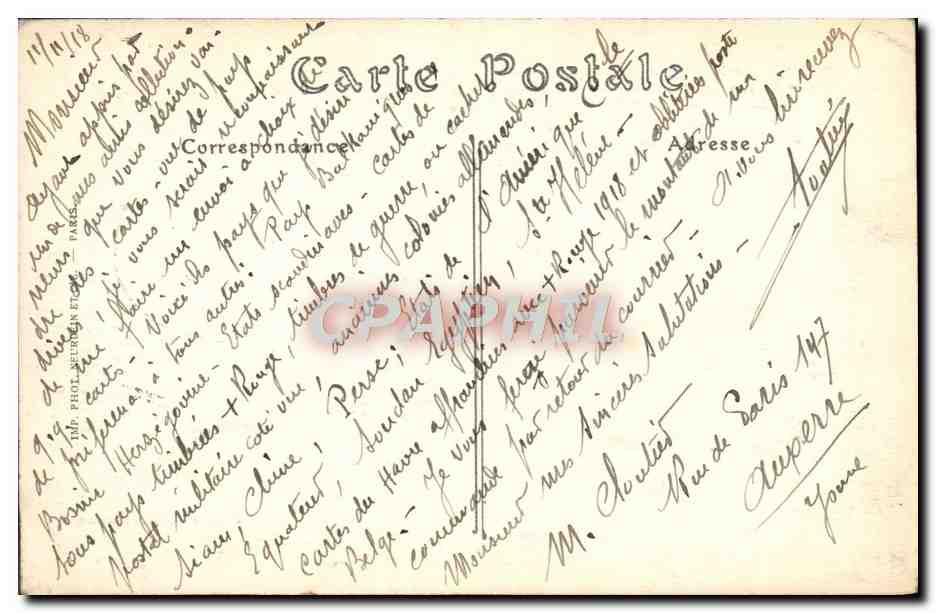 11/11/18
Monsieur
ayant appris par
un de mes amis collection-
neurs que vous désirez ven-
dre des cartes vue de pays
divers, je vous serais reconnaissant
de me faire un envoi à choix
de q.q. cartes - Voici les pays que je désire
de préférence à tous autres: Pays Balkaniques
Bosnie Herzégovine - Etats scandinaves - cartes de
tous pays timbrées + Rouge, timbres de guerre ou cachet
postal militaire côté vue; anciennes colonies allemandes;
Siam; Chine; Perse; Etats de l'Amérique
Equateur, Soudan Egyptien; Ste Hélène -
cartes du Havre affranchies avec + Rouge 1918 et oblitérées poste
Belge - Je vous ferai parvenir le montant de ma
commande par retour du courrier - A vous lire recevez
Monsieur mes sincères salutations -
M. Cloutier
Rue de Paris 147
Auxerre
Yonne
Carte Postale
Correspondance
Adresse
IMP. PHOT. NEURDEIN ET Cie - PARIS
CPAPHIL